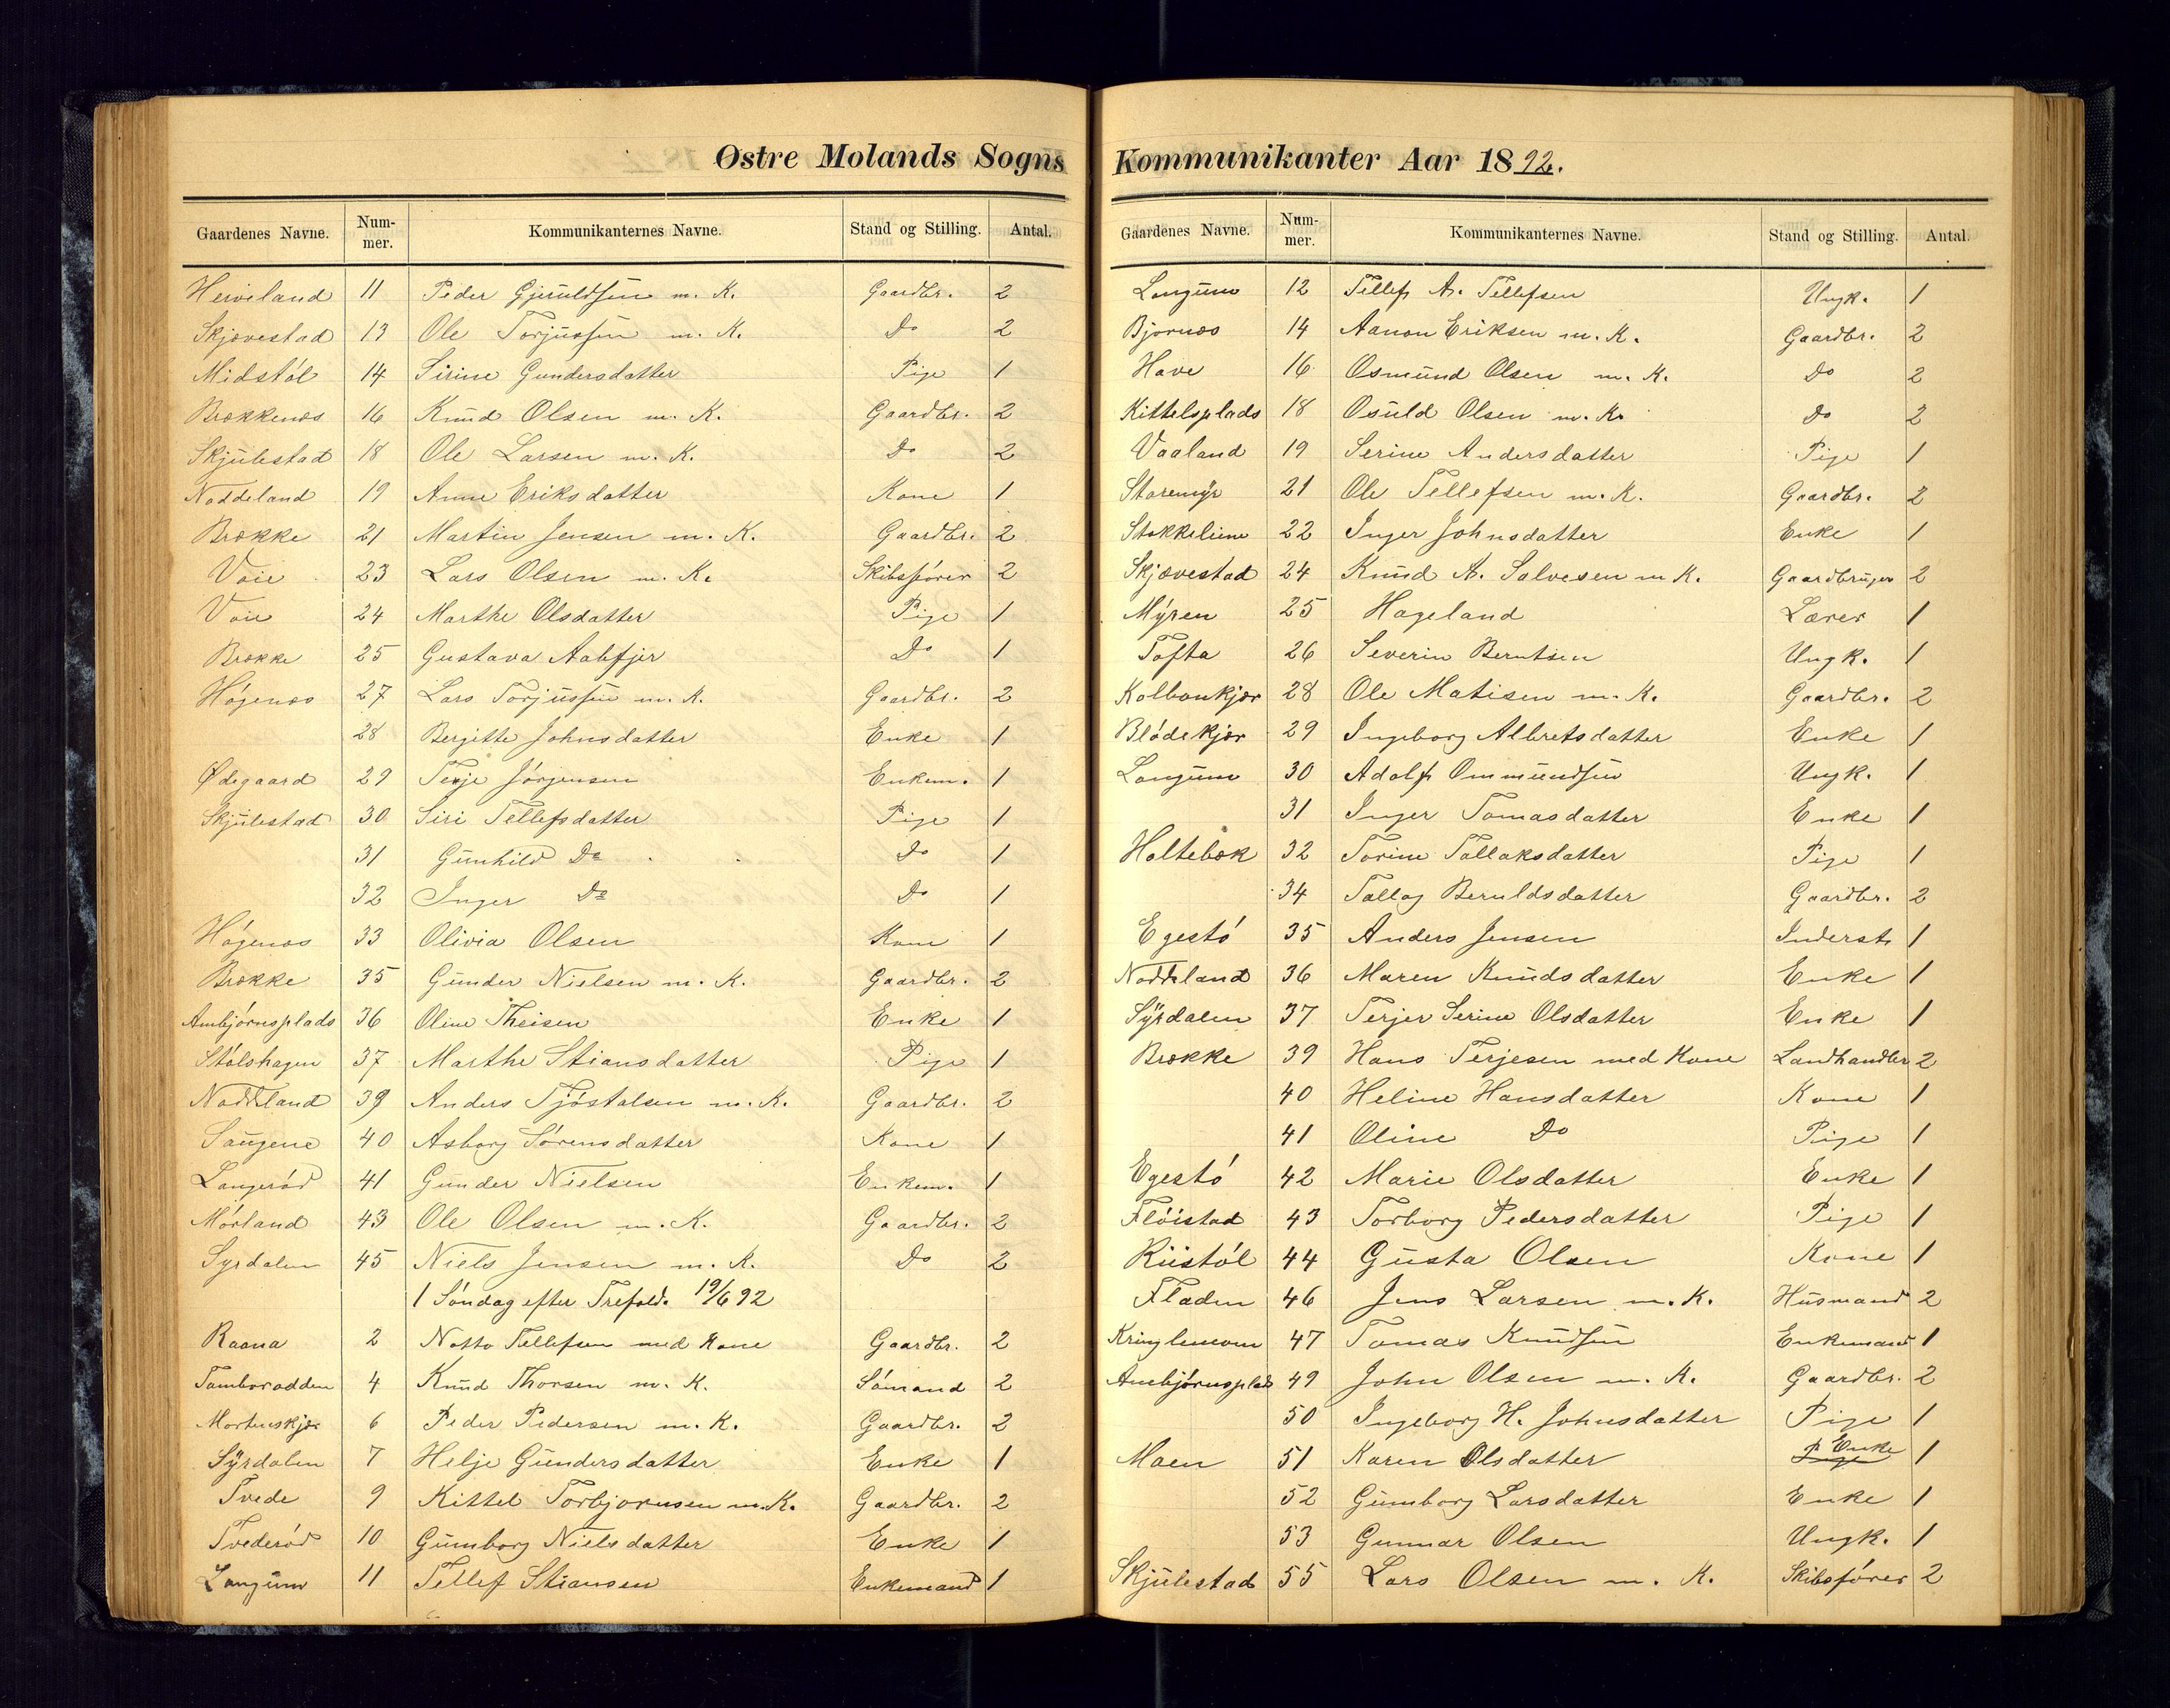 Østre Molands Sogns
Gaardenes Navne. Num-mer. Kommunikanternes Navne. Stand og Stilling. Antal.
Herveland 11 Peder Gjeruldsen m. K. Gaardbr. 2
Skjævestad 13 Ole Torjussen m. K. Do 2
Midstól 14 Sirine Gundersdatter Pige 1
Brækkenæs 16 Knud Olsen m. K. Gaardbr. 2
Skjulestad 18 Ole Larsen m. K. Do 2
Naddeland 19 Anne Eriksdatter Kone 1
Brække 21 Martin Jensen m. K. Gaardbr. 2
Voie 23 Lars Olsen m. K. Skibsfórer 2
Voie 24 Marthe Olsdatter Pige 1
Brække 25 Gustava Aalefjer Do 1
Hógenæs 27 Lars Torjussen m. K. Gaardbr. 2
28 Bergitte Johnsdatter Enke 1
Ødegaard 29 Terje Jórgensen Enkem. 1
Skjulestad 30 Siri Tellefsdatter Pige 1
31 Gunhild Do Do 1
32 Inger Do Do 1
Hógenæs 33 Olivia Olsen Kone 1
Brække 35 Gunder Nielsen m. K. Gaardbr. 2
Ambjórnsplads 36 Oline Theisen Enke 1
Stólshagen 37 Marthe Stiansdatter Pige 1
Naddeland 39 Anders Tjóstalsen m. K. Gaardbr. 2
Saugene 40 Asborg Sórensdatter Kone 1
Langeród 41 Gunder Nielsen Enkem. 1
Mórland 43 Ole Olsen m. K. Gaardbr. 2
Syrdalen 45 Niels Jensen m. K. Do 2
1 Sóndag efter Trefold. 19/6 92
Raana 2 Notto Tellefsen med Kone Gaardbr. 2
Tamborodden 4 Knud Thorsen m. K. Sómand 2
Mortenskjær 6 Peder Pedersen m. K. Gaardbr. 2
Syrdalen 7 Helje Gundersdatter Enke 1
Tvede 9 Kittel Torbjornsen m. K. Gaardbr. 2
Tvederód 10 Gumborg Nielsdatter Enke 1
Langum 11 Tellef Stiansen Enkemand 1
Kommunikanter Aar 1892.
Gaardenes Navne. Num-mer. Kommunikanternes Navne. Stand og Stilling. Antal.
Langum 12 Tellef A. Tellefsen Ungk. 1
Bjornæs 14 Aanon Eriksen m. K. Gaardbr. 2
Have 16 Osmund Olsen m. K. Do 2
Kittelsplads 18 Osuld Olsen m. K. Do 2
Vaaland 19 Serine Andersdatter Pige 1
Staremyr 21 Ole Tellefsen m. K. Gaardbr. 2
Stokkeliene 22 Inger Johnsdatter Enke 1
Skjævestad 24 Knud A. Salvesen m K. Gaardbruger 2
Myren 25 Hageland Lærer 1
Tofta 26 Severin Berntsen Ungk. 1
Kalbankjær 28 Ole Matisen m. K. Gaardbr. 2
Blódekjær 29 Ingeborg Albretsdatter Enke 1
Langum 30 Adolf Ommundsen Ungk. 1
31 Inger Tomasdatter Enke 1
Holtebæk 32 Torine Tallaksdatter Pige 1
34 Tallag Beruldsdatter Gaardbr. 2
Egestó 35 Anders Jensen Inderst 1
Naddeland 36 Maren Knudsdatter Enke 1
Syrdalen 37 Terjer Serine Olsdatter Enke 1
Brække 39 Hans Terjesen med Kone Landhandler 2
40 Heline Hansdatter Kone 1
41 Oline Do Pige 1
Egestó 42 Marie Olsdatter Enke 1
Flóistad 43 Torborg Pedersdatter Pige 1
Riistól 44 Gusta Olsen Kone 1
Fladen 46 Jens Larsen m. K. Husmand 2
47 Tomas Knudsen Enkemand 1
Ambjórnsplads 49 John Olsen m. K. Gaardbr. 2
50 Ingeborg H. Johnsdatter Pige 1
Moen 51 Karen Olsdatter Pige Enke 1
52 Gumborg Larsdatter Enke 1
53 Gunnar Olsen Ungk. 1
Skjulestad 55 Lars Olsen m. K. Skibsfórer 2